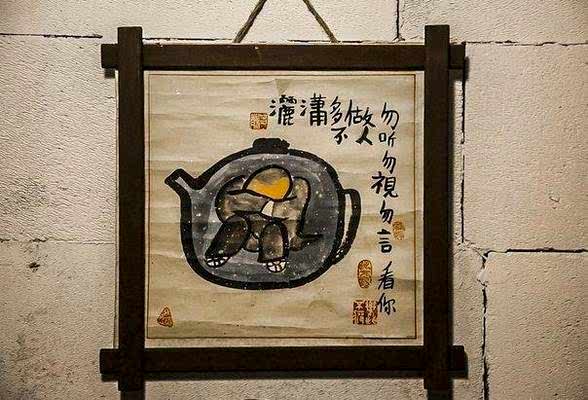 勿听勿視勿言看你
做人
多不
瀟
灑